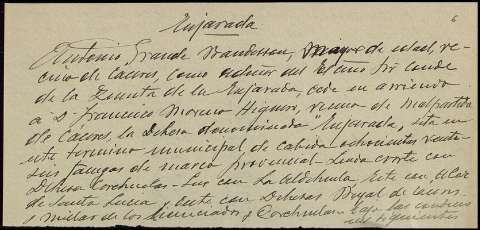 Enjarada
6
Antonio Grande Baudesson, Mayor de edad, ve-
cino de Caceres, como admor del Excmo Sr Conde
de la Quinta de la Enjarada, cede en arriendo
a D. Francisco Moreno Higuero, vecino de Malpartida
de Caceres, la Dehesa denominada "Enjarada, sita en
este termino municipal de cabida ochocientas veinte
seis fanegas de marco provincial- Linda norte con
Dehesa Corchuelas- Sur con La Aldehuela Este con
de Santa Lucia y oeste con Dehesas Boyal de Caceres
y Corchuelas- bajo las condicio
nes siguientes